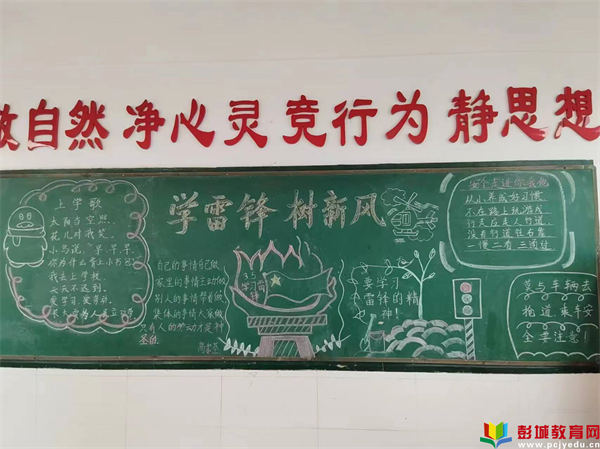 敬自然 净心灵 竞行为 静思想
学雷锋 树新风
上学歌
太阳当空照
花儿对我笑
小鸟说早早早
你为什么背上小书包
我去上学校
天天不迟到
爱学习爱劳动
自己的事情自己做
家里的事情主动做
别人的事情帮着做
集体的事情大家做
只有人的劳动才是神
圣的
3.5
学习雷
锋
要学习
雷锋的精
神!
安全走进你我他
从小养成好习惯
不在路上玩游戏
行走应走人行道
没有行道往右靠
一慢二看三通过
莫与车辆去
抢道,乘车安
全要注意!
彭城教育网
www.pcjyedu.cn